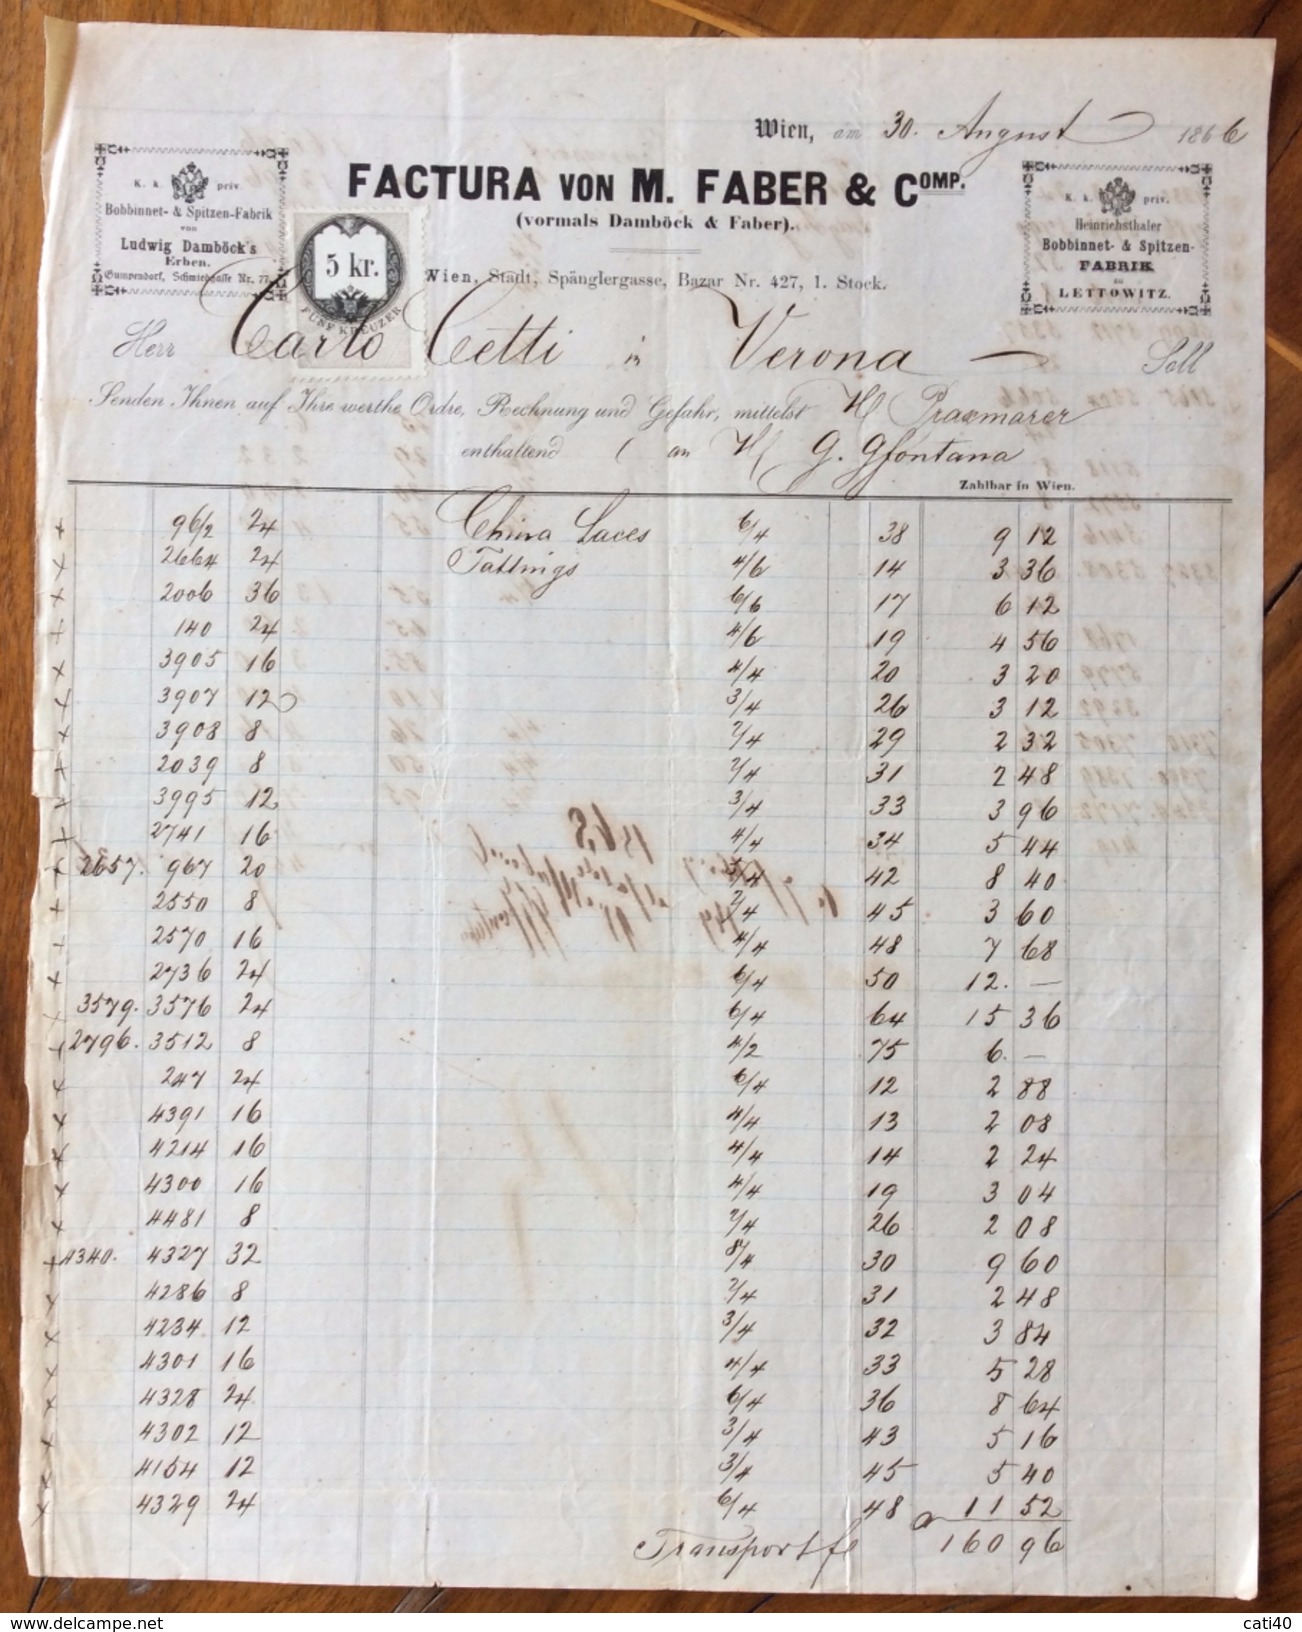 Wien, am 30. August 1866
K. k. priv.
Bobbinnet- & Spitzen-Fabrik
von
Ludwig Damböck's
Erben.
Gumpendorf, Schmiedgasse Nr. 77
FACTURA VON M. FABER & COMP.
(vormals Damböck & Faber).
Wien, Stadt, Spänglergasse, Bazar Nr. 427, 1. Stock.
5 kr.
FÜNF KREUZER
K. k. priv.
Heinrichsthaler
Bobbinnet- & Spitzen-
FABRIK
zu
LETTOWITZ.
Herr Carlo Cetti in Verona Soll
Senden Ihnen auf Ihre werthe Ordre, Rechnung und Gefahr, mittelst H Praxmarer
enthaltend an H G. Gfontana
Zahlbar in Wien.
x 96/2 24 China Laces 6/4 38 9 12
x 2664 24 Tattings 4/6 14 3 36
x 2006 36 6/6 17 6 12
x 140 24 4/6 19 4 56
x 3905 16 4/4 20 3 20
x 3907 12 3/4 26 3 12
x 3908 8 2/4 29 2 32
x 2039 8 2/4 31 2 48
x 3995 12 3/4 33 3 96
x 2741 16 4/4 34 5 44
x 2657. 967 20 5/4 42 8 40
x 2550 8 2/4 45 3 60
x 2570 16 4/4 48 7 68
x 2736 24 6/4 50 12. —
x 3579. 3576 24 6/4 64 15 36
x 2796. 3512 8 4/2 75 6. —
x 247 24 6/4 12 2 88
x 4391 16 4/4 13 2 08
x 4214 16 4/4 14 2 24
x 4300 16 4/4 19 3 04
x 4481 8 2/4 26 2 08
x 4340. 4327 32 8/4 30 9 60
x 4286 8 2/4 31 2 48
x 4234 12 3/4 32 3 84
x 4301 16 4/4 33 5 28
x 4328 24 6/4 36 8 64
x 4302 12 3/4 43 5 16
x 4154 12 3/4 45 5 40
x 4329 24 6/4 48 11 52
Transport fl 160 96
cati40